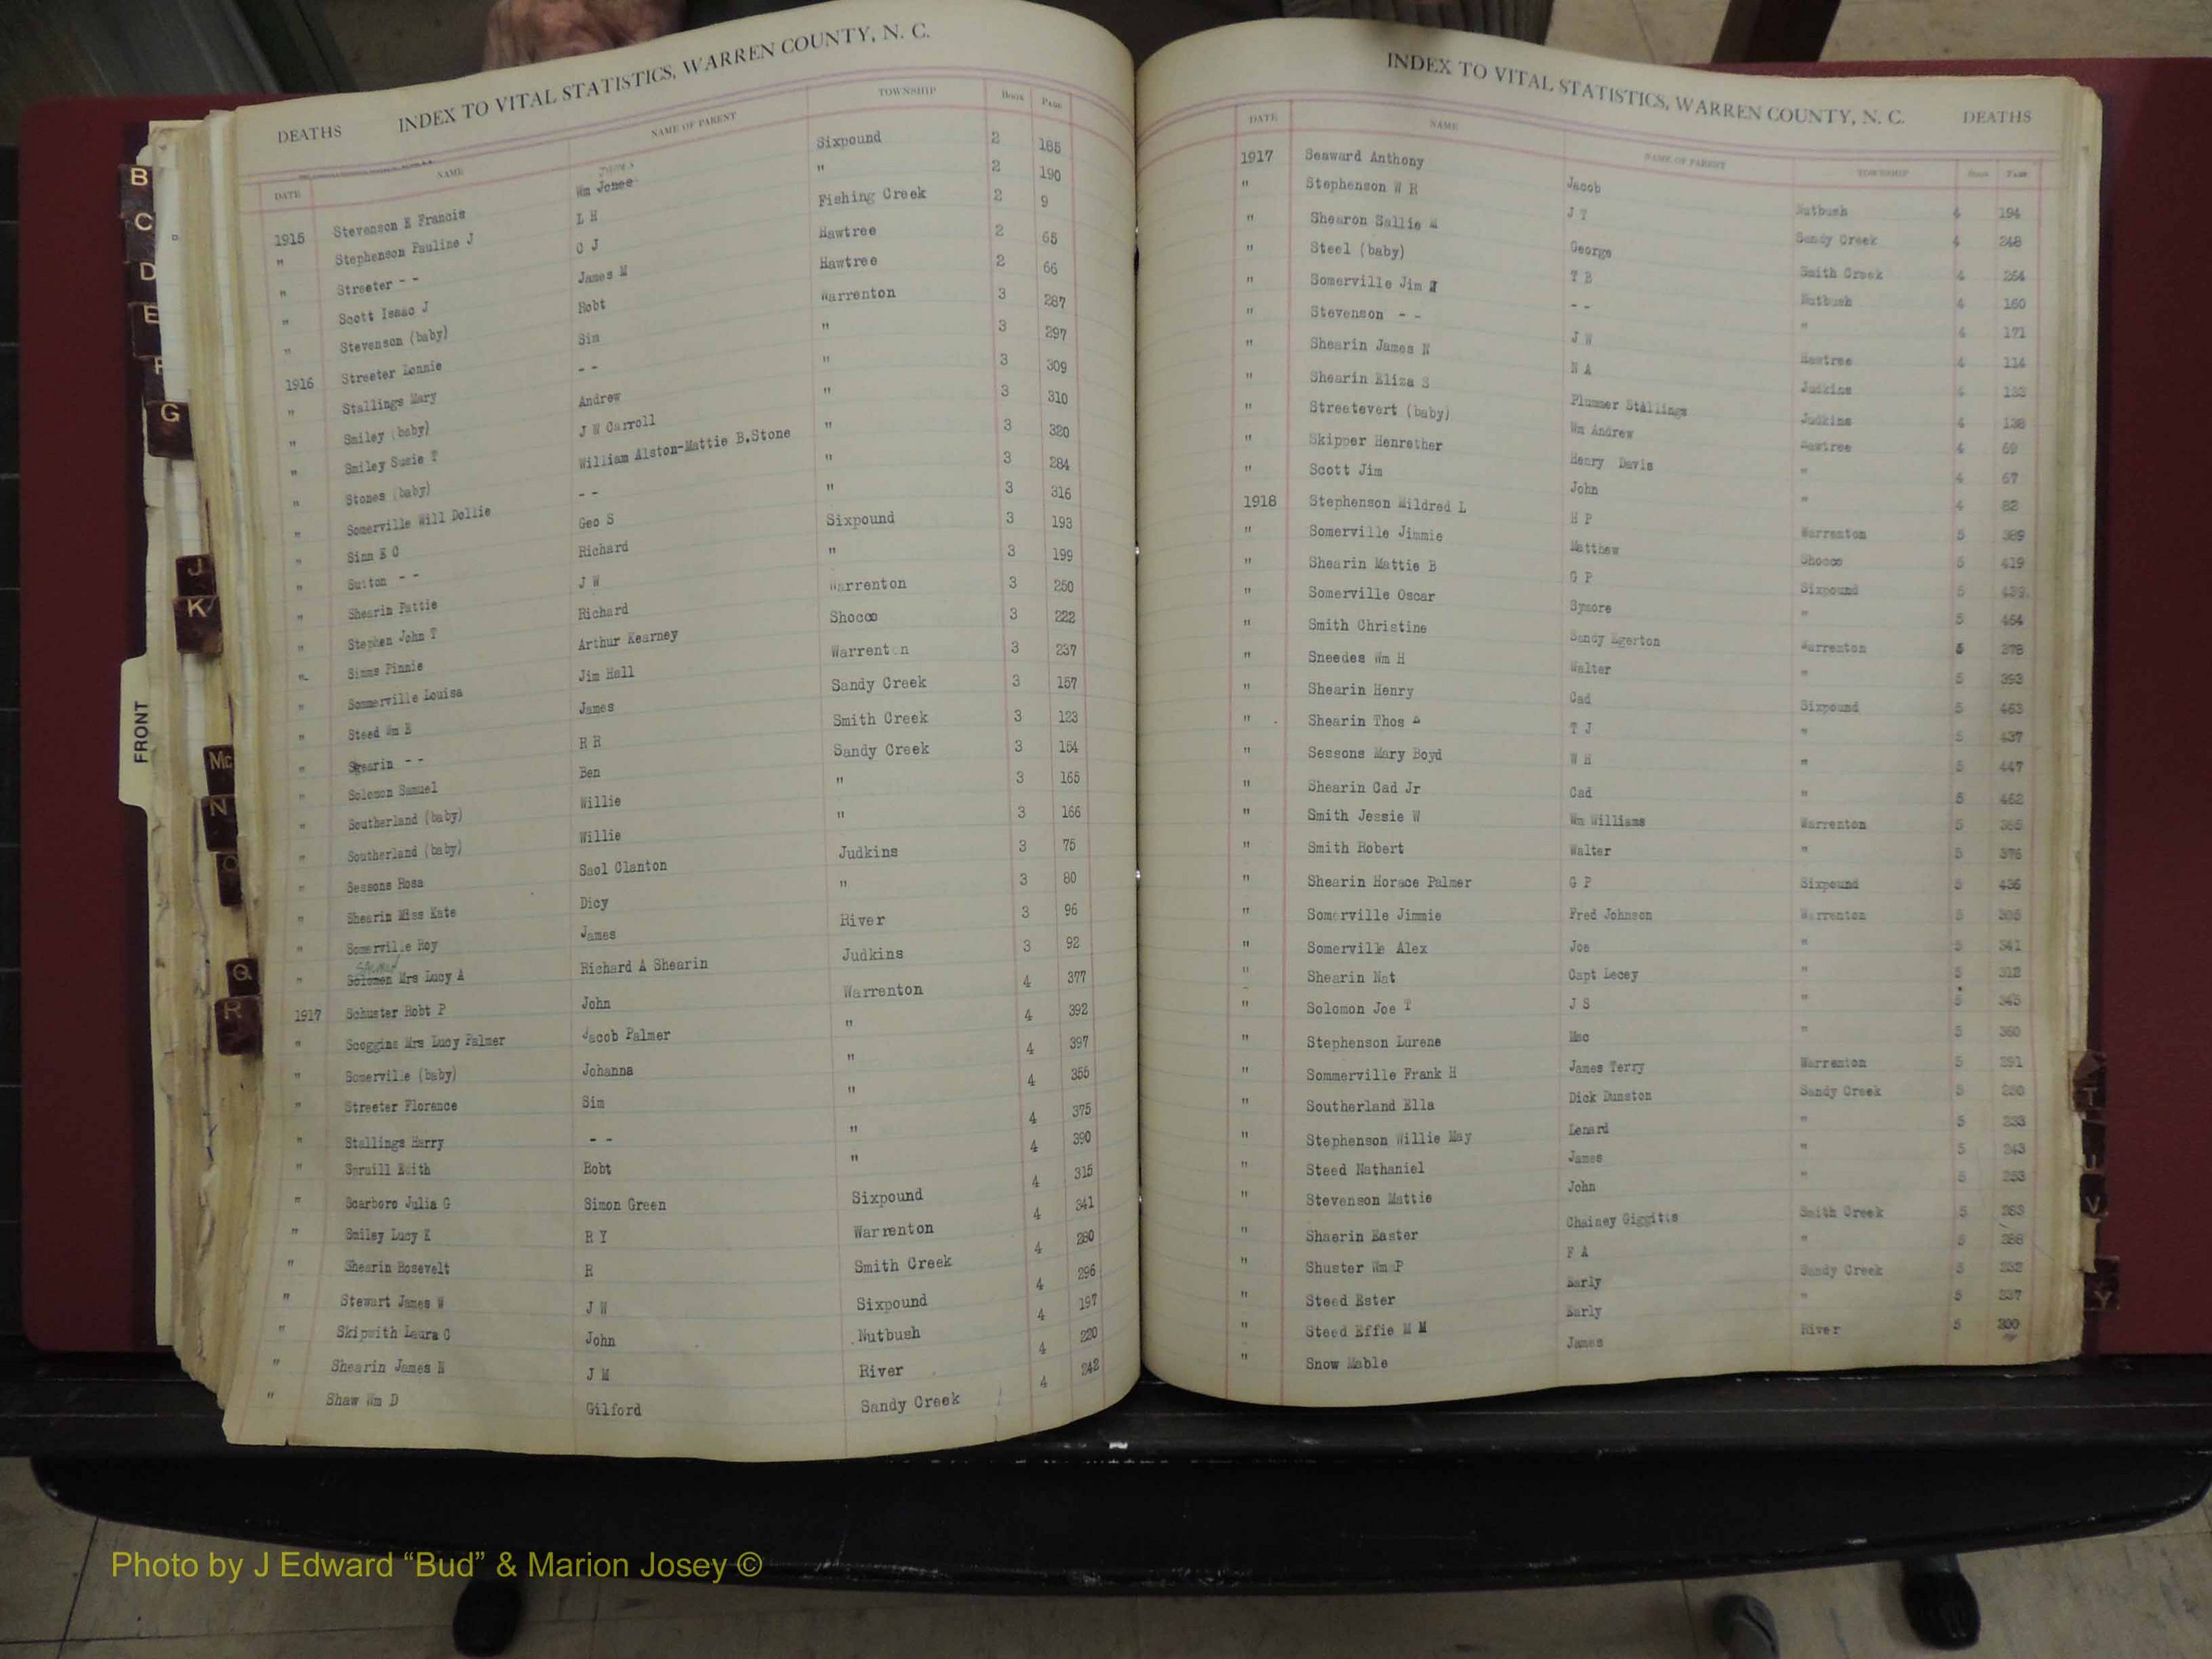 DEATHS INDEX TO VITAL STATISTICS, WARREN COUNTY, N. C.
DATE NAME NAME OF PARENT TOWNSHIP BOOK PAGE
1915 Stevenson E Francis Wm Jones Sixpound 2 185
" Stephenson Pauline J L H " 2 190
" Streeter - - C J Fishing Creek 2 9
" Scott Isaac J James M Hawtree 2 65
" Stevenson (baby) Robt Hawtree 2 66
1916 Streeter Lonnie Sim Warrenton 3 287
" Stallings Mary - - " 3 297
" Smiley (baby) Andrew " 3 309
" Smiley Susie T J W Carroll " 3 310
" Stones (baby) William Alston-Mattie B.Stone " 3 320
" Somerville Will Dollie - - " 3 284
" Sinn E C Geo S " 3 316
" Sutton - - Richard Sixpound 3 193
" Shearin Pattie J W " 3 199
" Stephen John T Richard Warrenton 3 250
" Simms Pinnie Arthur Kearney Shocco 3 222
" Sommerville Louisa Jim Hall Warrenton 3 237
" Steed Wm E James Sandy Creek 3 157
" Shearin - - R R Smith Creek 3 123
" Solomon Samuel Ben Sandy Creek 3 154
" Southerland (baby) Willie " 3 165
" Southerland (baby) Willie " 3 166
" Sessons Rosa Saol Clanton Judkins 3 75
" Shearin Miss Kate Dicy " 3 80
" Somerville Roy James River 3 96
" Solomon Mrs Lucy A Richard A Shearin Judkins 3 92
1917 Schuster Robt P John Warrenton 4 377
" Scoggins Mrs Lucy Palmer Jacob Palmer " 4 392
" Somerville (baby) Johanna " 4 397
" Streeter Florence Sim " 4 355
" Stallings Harry - - " 4 375
" Spruill Edith Robt " 4 390
" Scarboro Julia G Simon Green Sixpound 4 315
" Smiley Lucy K R Y Warrenton 4 341
" Shearin Rosevelt R Smith Creek 4 280
" Stewart James W J W Sixpound 4 296
" Skipwith Laura C John Nutbush 4 197
" Shearin James N J M River 4 220
" Shaw Wm D Gilford Sandy Creek 4 242
INDEX TO VITAL STATISTICS, WARREN COUNTY, N. C. DEATHS
DATE NAME NAME OF PARENT TOWNSHIP BOOK PAGE
1917 Seaward Anthony Jacob Nutbush 4 194
" Stephenson W R J T Sandy Creek 4 248
" Shearon Sallie M George Smith Creek 4 264
" Steel (baby) T B Nutbush 4 160
" Somerville Jim - - " 4 171
" Stevenson - - J W Hawtree 4 114
" Shearin James N N A Judkins 4 133
" Shearin Eliza S Plummer Stallings Judkins 4 138
" Streetevert (baby) Wm Andrew Hawtree 4 69
" Skipper Henrether Henry Davis " 4 67
" Scott Jim John " 4 82
1918 Stephenson Mildred L H P Warrenton 5 389
" Somerville Jimmie Matthew Shocco 5 419
" Shearin Mattie B G P Sixpound 5 439
" Somerville Oscar Symore " 5 454
" Smith Christine Sandy Egerton Warrenton 5 378
" Sneedes Wm H Walter " 5 393
" Shearin Henry Cad Sixpound 5 463
" Shearin Thos T J " 5 437
" Sessons Mary Boyd W H " 5 447
" Shearin Cad Jr Cad " 5 462
" Smith Jessie W Wm Williams Warrenton 5 365
" Smith Robert Walter " 5 376
" Shearin Horace Palmer G P Sixpound 5 436
" Somerville Jimmie Fred Johnson Warrenton 5 305
" Somerville Alex Joe " 5 341
" Shearin Nat Capt Lecey " 5 312
" Solomon Joe T J S " 5 345
" Stephenson Lurene Mac " 5 360
" Sommerville Frank H James Terry Warrenton 5 391
" Southerland Ella Dick Dunston Sandy Creek 5
" Stephenson Willie May Lenard " 5 233
" Steed Nathaniel James " 5 243
" Stevenson Mattie John " 5 253
" Shaerin Easter Chainey Giggitts Smith Creek 5 263
" Shuster Wm P F A " 5
" Steed Ester Early Sandy Creek 5 232
" Steed Effie M M Early " 5 237
" Snow Mable James River 5
B
C
D
E
F
G
J
K
FRONT
Mc
N
O
Q
R
T
U
V
Y
Photo by J Edward “Bud” & Marion Josey ©